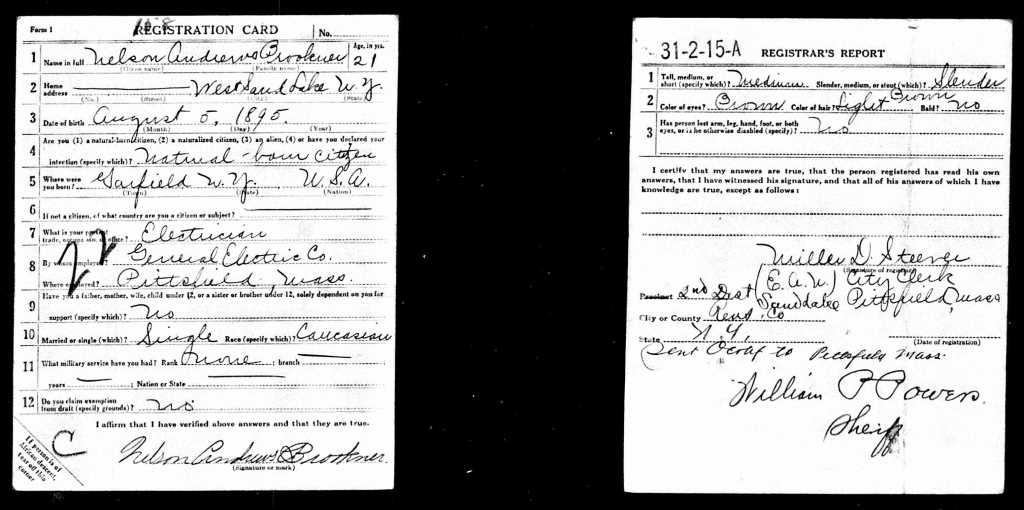 Form 1 REGISTRATION CARD No.
1 Name in full Nelson Andrews Brookner Age, in yrs. 21
(Given name) (Family name)
2 Home address West Sand Lake N.Y.
(No.) (Street) (City) (State)
3 Date of birth August 5, 1895.
(Month) (Day) (Year)
4 Are you (1) a natural-born citizen, (2) a naturalized citizen, (3) an alien, (4) or have you declared your
intention (specify which)? Natural-born citizen
5 Where were you born? Garfield N.Y. U.S.A.
(Town) (State) (Nation)
6 If not a citizen, of what country are you a citizen or subject?
7 What is your present trade, occupation, or office? Electrician
22
8 By whom employed? General Electric Co.
Where employed? Pittsfield, Mass.
9 Have you a father, mother, wife, child under 12, or a sister or brother under 12, solely dependent on you for
support (specify which)? No
10 Married or single (which)? Single Race (specify which)? Caucasian
11 What military service have you had? Rank None ; branch
years ; Nation or State
12 Do you claim exemption from draft (specify grounds)? No
I affirm that I have verified above answers and that they are true.
C
Nelson Andrews Brookner.
(Signature or mark)
If person is of
African descent,
tear off this
corner
31-2-15-A REGISTRAR'S REPORT
1 Tall, medium, or short (specify which)? Medium Slender, medium, or stout (which)? Slender
2 Color of eyes? Brown Color of hair? Light Brown Bald? No
3 Has person lost arm, leg, hand, foot, or both
eyes, or is he otherwise disabled (specify)? No
I certify that my answers are true, that the person registered has read his own
answers, that I have witnessed his signature, and that all of his answers of which I have
knowledge are true, except as follows:
Miller D. Steever
(Signature of registrar)
Precinct 2nd Dist (E.A.W.) City Clerk
Sandlake Pittsfield, Mass
City or County Rens. Co
State N.Y.
(Date of registration)
Sent to Pittsfield Mass.
William P Powers.
Sheriff